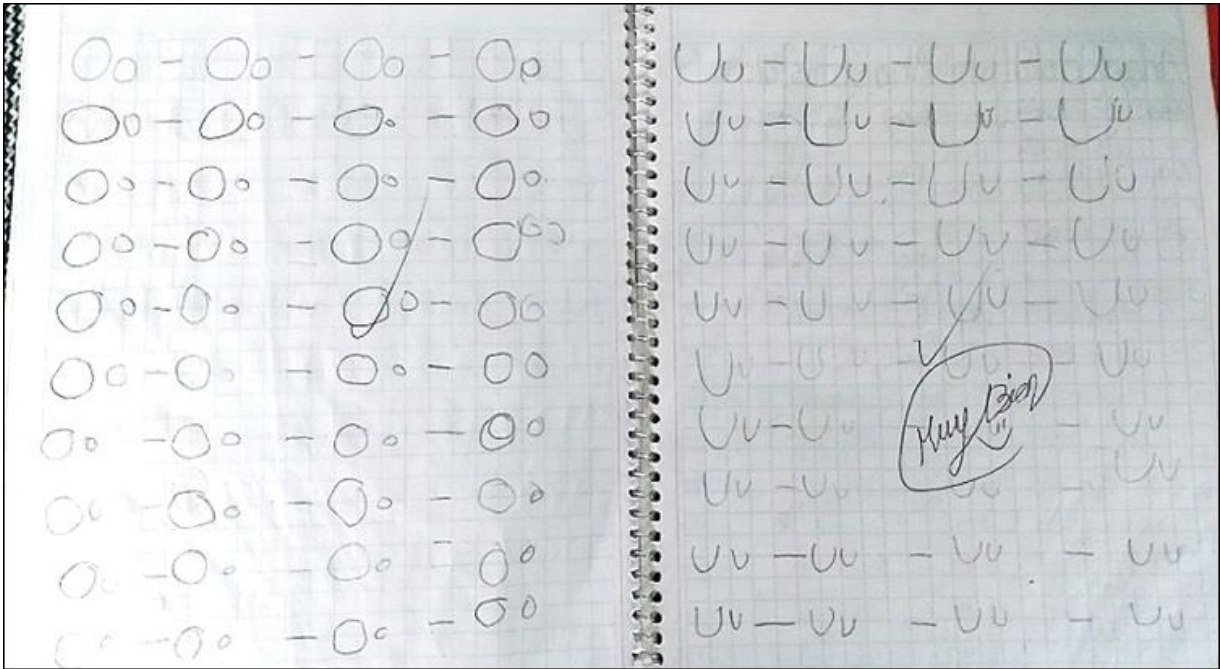 Oo - Oo - Oo - Oo
Oo - Oo - Oo - Oo
Oo - Oo - Oo - Oo
Oo - Oo - Oo - Ooo
Oo - Oo - Oo - Oo
Oo - Oo - Oo - Oo
Oo - Oo - Oo - Oo
Oo - Oo - Oo - Oo
Oo - Oo - Oo - Oo
Oo - Oo - Oo - Oo
Uu - Uu - Uu - Uu
Uu - Uu - Uu - Uu
Uu - Uu - Uu - Uu
Uu - Uu - Uu - Uu
Uu - Uu - Uu - Uu
Uu - Uu - Uu - Uu
Uu - Uu - Uu
Uu - Uu - Uu - Uu
Uu - Uu - Uu - Uu
Uu - Uu - Uu - Uu
Muy Bien